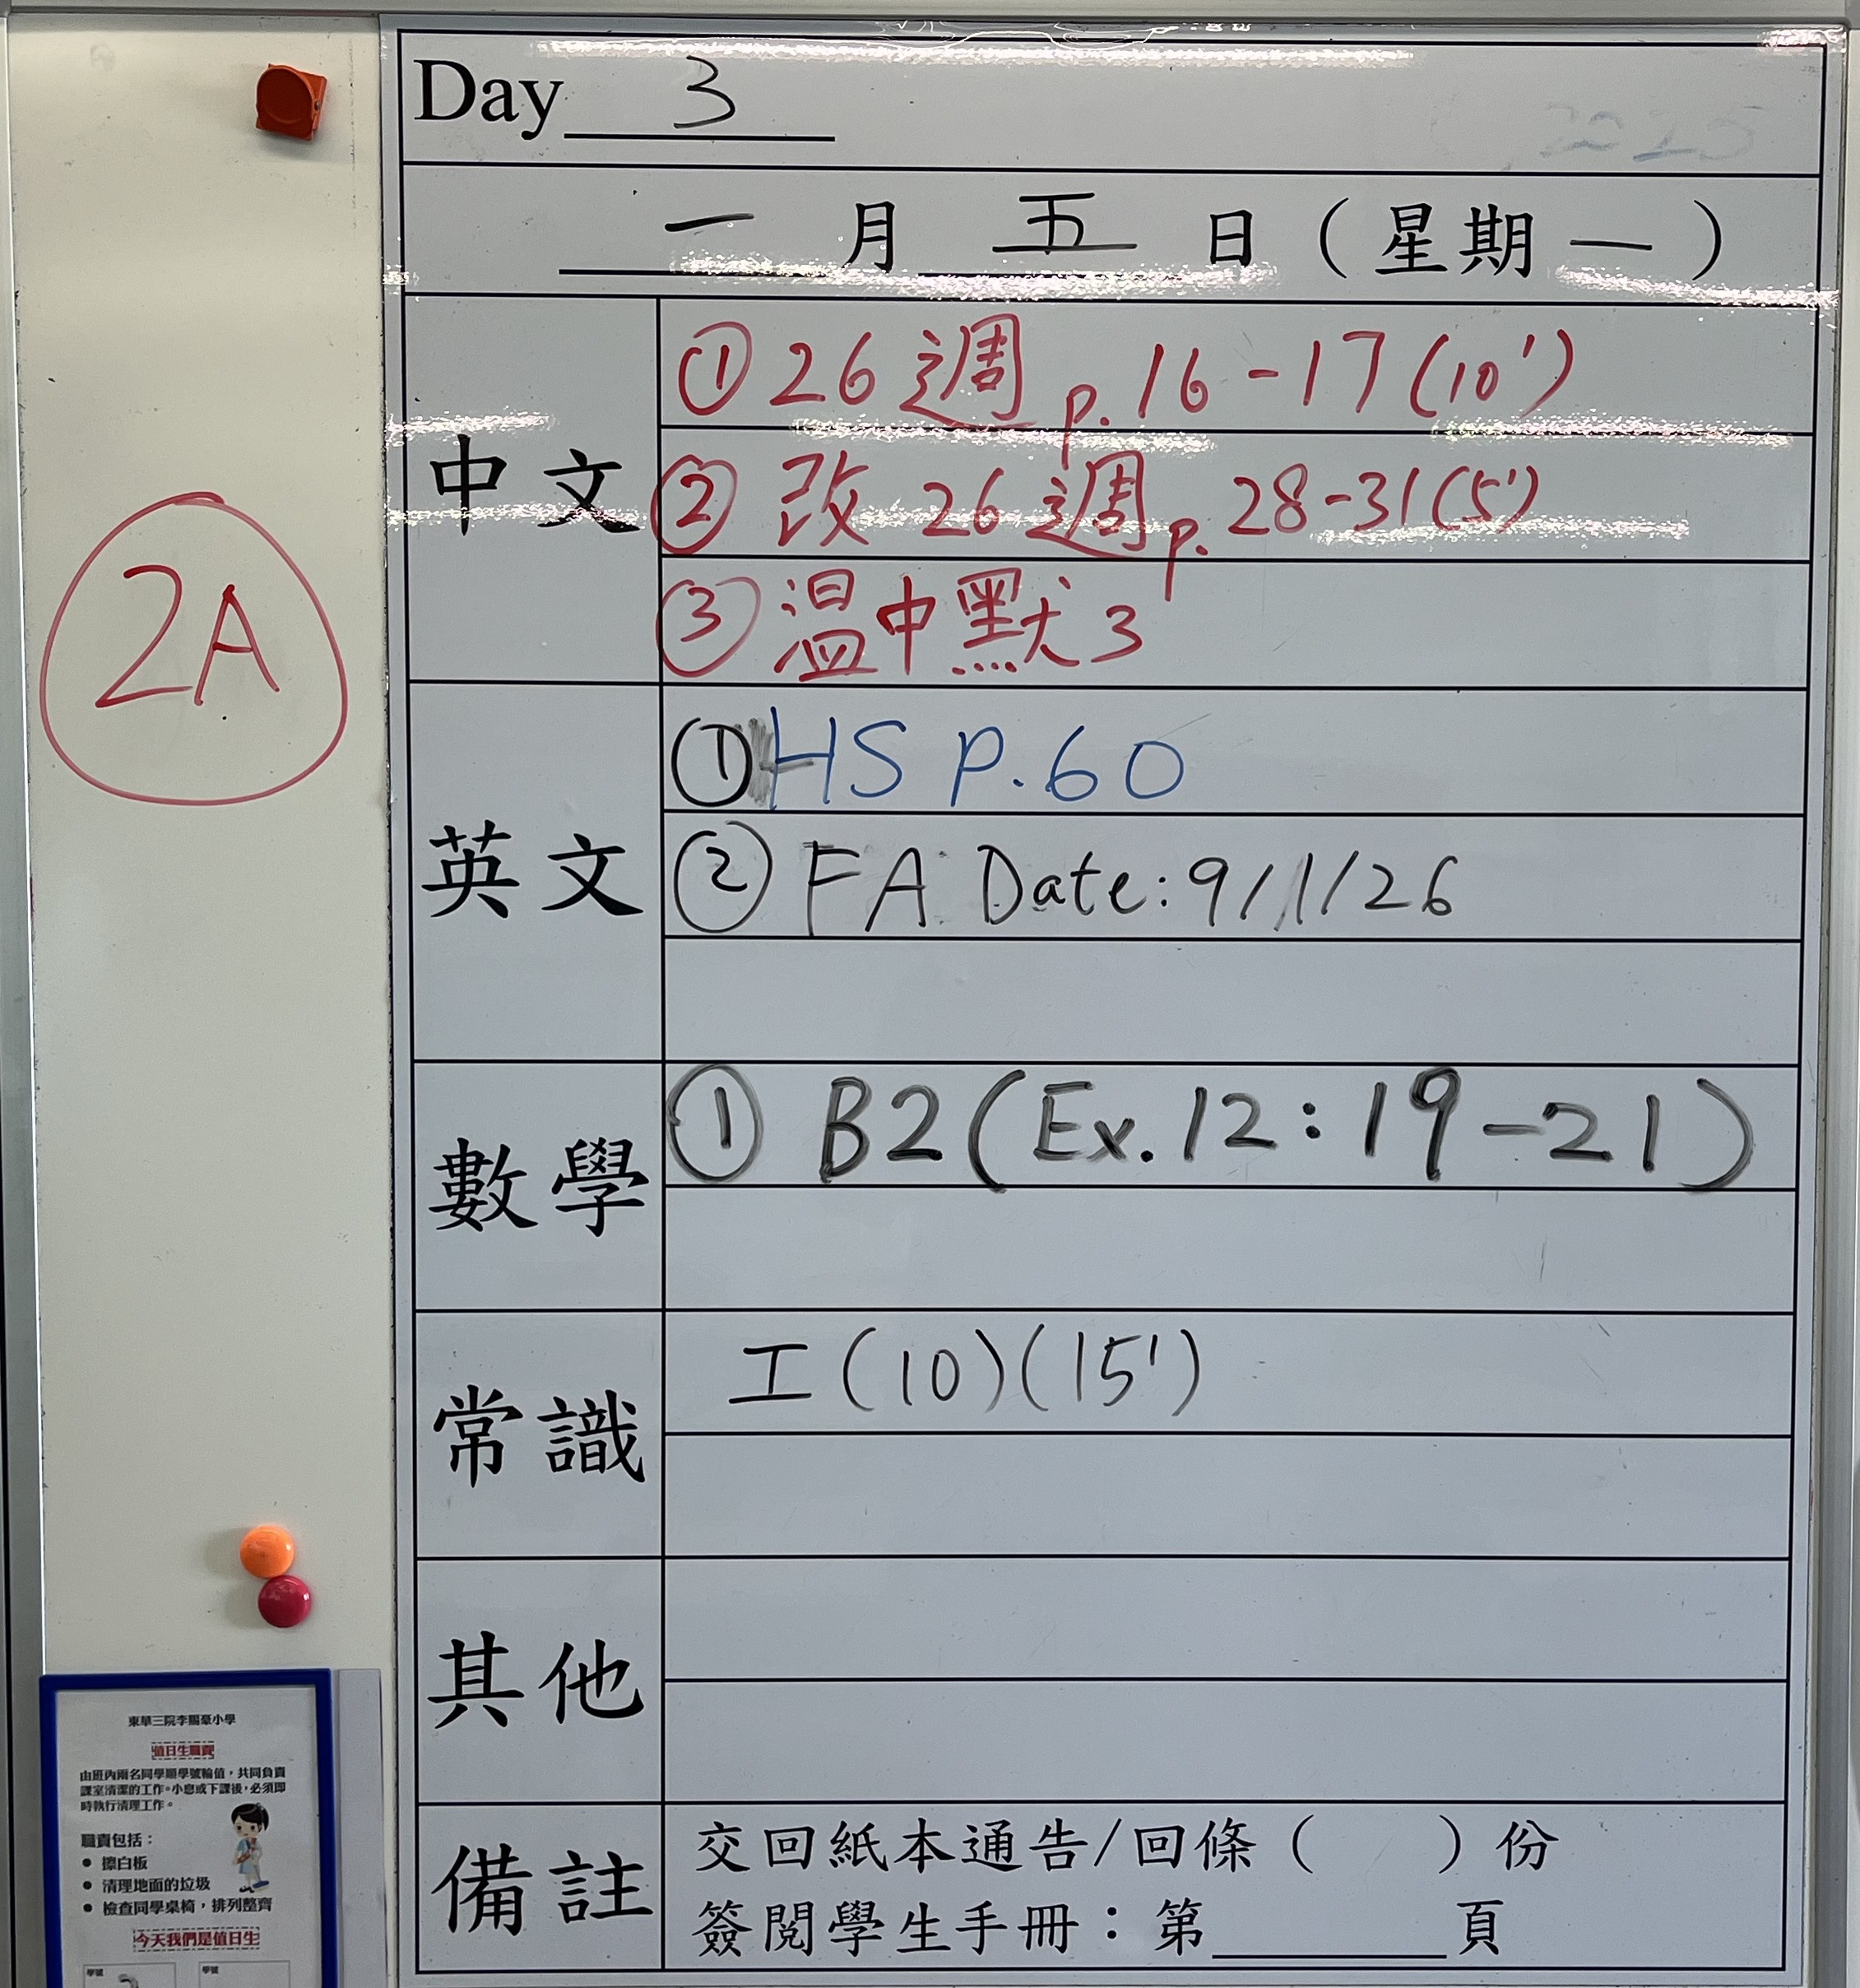 Day 3
2025
一 月 五 日（星期一）
中文
①26週 p.16-17(10')
②改 26週 p.28-31(5')
③溫中默3
2A
英文
①HS P.60
②FA Date:9/1/26
數學
① B2(Ex.12:19-21)
常識
工(10)(15')
其他
備註
交回紙本通告/回條（ ）份
簽閱學生手冊：第______頁
東華三院李賜豪小學
值日生職責
由班內兩名同學順學號輪值，共同負責
課室清潔的工作。小息或下課後，必須即
時執行清理工作。
職責包括：
● 擦白板
● 清理地面的垃圾
● 檢查同學桌椅，排列整齊
今天我們是值日生
學號 學號